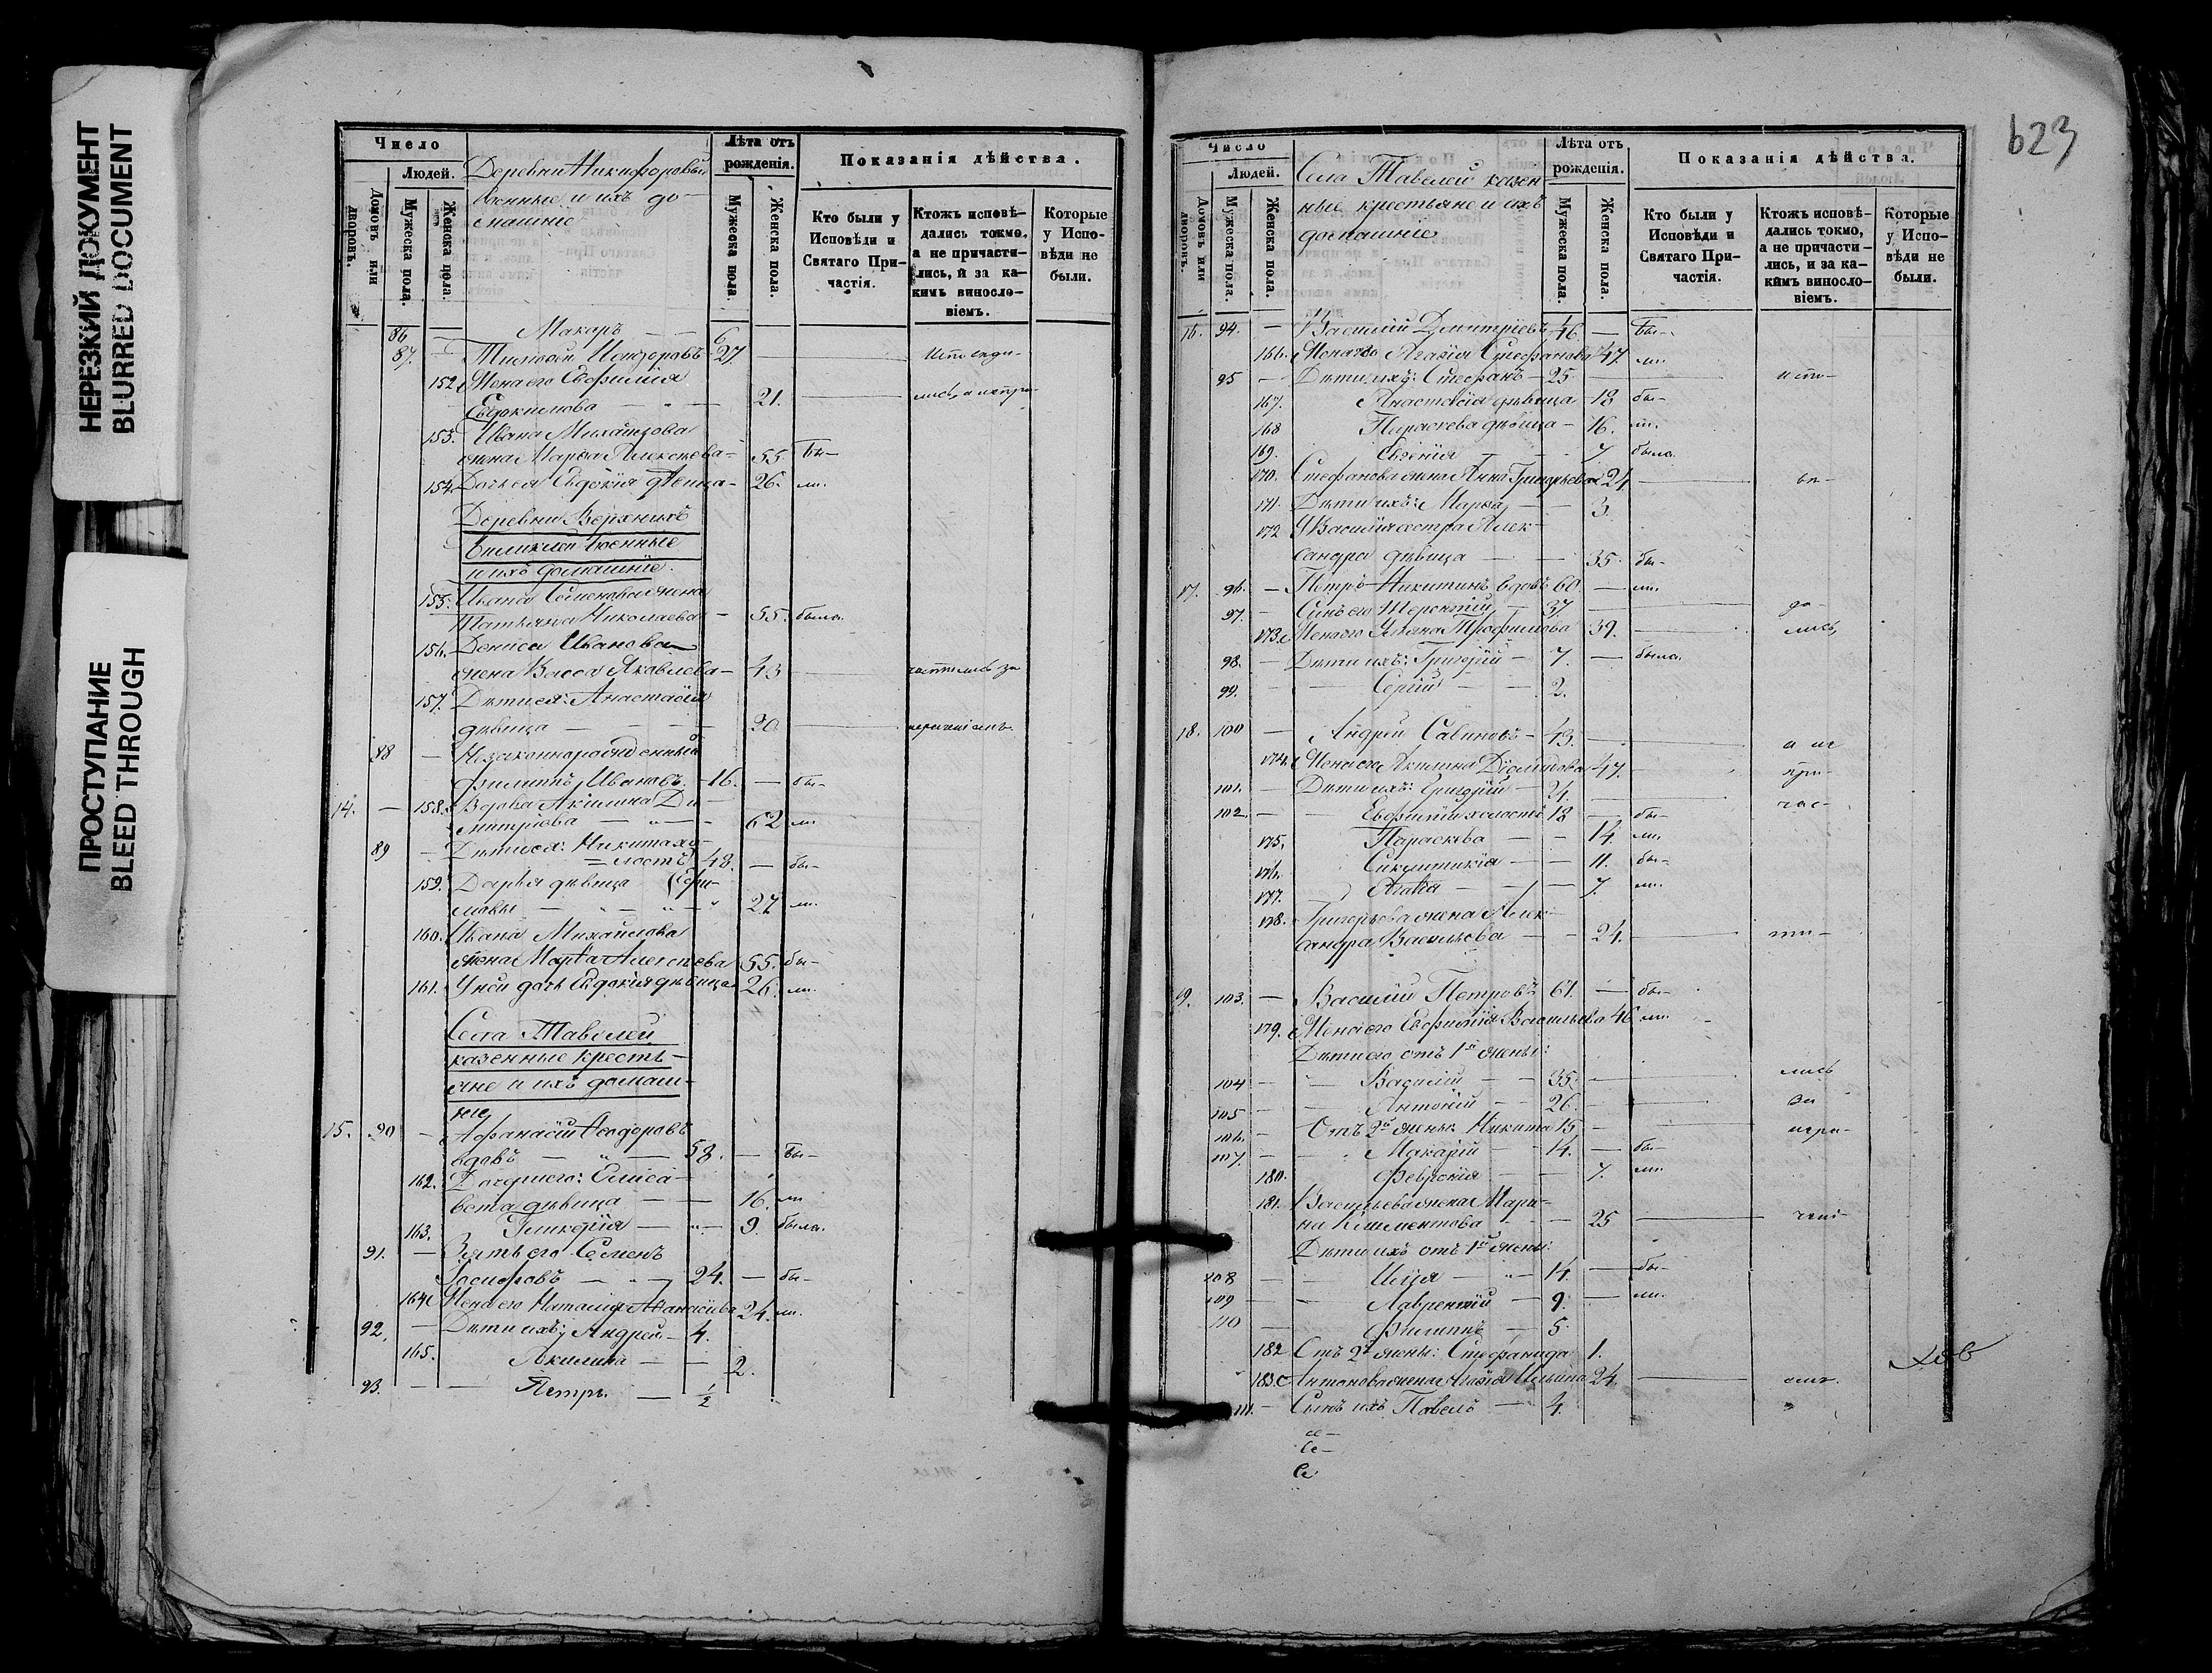 НЕРЕЗКИЙ ДОКУМЕНТ
BLURRED DOCUMENT
ПРОСТУПАНИЕ
BLEED THROUGH
Число
Людей.
Домовъ или дворовъ.
Мужеска пола.
Женска пола.
Деревни Никифоровки
военные и ихъ до-
машніе
Лѣта отъ рожденія.
Мужеска пола.
Женска пола.
Показанія дѣйства.
Кто были у Исповѣди и Святаго При-частія.
Ктожъ исповѣ-дались токмо, а не причасти-лись, и за ка-кимъ виносло-віемъ.
Которые у Испо-вѣди не были.
86 — Макаръ — — 6
87. — Исидоровъ 27
152. Жена его Евфимія
Евдокимова — 21.
153. Ивана Михайлова
жена Марѳа Алексѣева — 55 бы-
154. Дочь ея Евдокія дѣвица — 26. ли.
Деревни Верхнихъ
военные
и ихъ домашніе.
155. Ивана Семенова жена
Татьяна Николаева — 55. была.
156. Дениса Иванова
жена Васса Яковлева — 43
157. Дѣти ея: Анастасія
дѣвица — — 20
88 — Незаконнорожденный
Филиппъ Ивановъ — 16. — бы-
14. — 158. Вдова Акилина Ди-
митріева — — 62 ли
89 — Дѣти ея: Никита хо-
=лостъ 48. — бы-
159. Дарья дѣвица (Ефи-
мовы — — 27 ли.
160. Ивана Михайлова
жена Марѳа Алексѣева 55. бы-
161. У нея дочь Евдокія дѣвица 26. ли.
Села Тавелей
казенные кресть-
яне и ихъ домаш-
ніе
15. 90 — Афанасій Ѳеодоровъ
вдовъ — — 58. — бы-
162. Дочери его: Елиса-
вета дѣвица — — 16. ли
163. Гликерія — — 9. была.
91. — Зять его Семенъ
Іосифовъ — — 24. — бы-
164. Жена его Наталія Афанасіева 24. ли.
92. — Дѣти ихъ: Андрей — 4.
165. Акилина — — 2.
93. — — Петръ. — ½
623
Число
Людей.
Домовъ или дворовъ.
Мужеска пола.
Женска пола.
Села Тавелей казен-
ные крестьяне и ихъ
домашніе
Лѣта отъ рожденія.
Мужеска пола.
Женска пола.
Показанія дѣйства.
Кто были у Исповѣди и Святаго При-частія.
Ктожъ исповѣ-дались токмо, а не причасти-лись, и за ка-кимъ виносло-віемъ.
Которые у Испо-вѣди не были.
16. 94. — Василій Дмитріевъ 46. — бы-
166. Жена его Агафія Стефанова 47. ли.
95 — Дѣти ихъ: Стефанъ — 25 — испо-
167. Анастасія дѣвица — 18 бы-
168 Параскева дѣвица — 16. ли.
169. Евгенія — — 7 была.
170. Стефанова жена Анна Григорьева 21 — вѣ-
171. Дѣти ихъ: Марѳа — — 3.
172 У Василія сестра Алек-
сандра дѣвица — — 35. бы-
17. 96. — Петръ Никитинъ вдовъ 60. — ли.
97. — Сынъ его Терентій — 37. — да-
173. Жена его Ульяна Трофимова 39. — лись,
98. — Дѣти ихъ: Григорій — 7. — была.
99. — Сергій — — 2.
18. 100 — Андрей Савиновъ — 43. — а не
174. Жена его Акилина 47. — при-
101. — Дѣти ихъ: Григорій — 21. — час-
102 — — Евфимій холостъ 18 — бы-
175. Параскева — — 14. ли.
176. Синклитикія — — 11. бы-
177. Агафія — — — 7. ли.
178. Григорьева жена Алек-
сандра Васильева — — 24. — ти-
19. 103. — Василій Петровъ 61. — бы-
179. Жена его Евфимія Васильева 46 ли.
Дѣти его отъ 1й жены:
104 — — Василій — — 35. — лись
105 — — Антоній — — 26. — за
106. — Отъ 2й жены: Никита 15 — нера-
107. — — Макарій — — 14. — бы-
180. Февронія — — 7. ли.
181. Васильева жена Мари-
на Климентова — — 25 — чені-
Дѣти ихъ отъ 1й жены:
108 — — Илія — — 14. — бы-
109 — — Лаврентій — 9. — ли.
110 — Филиппъ — 5.
182 Отъ 2й жены: Стефанида 1.
183. Антонова жена Агафія Ильина 24 — емъ.
111. — Сынъ ихъ Павелъ — 4.